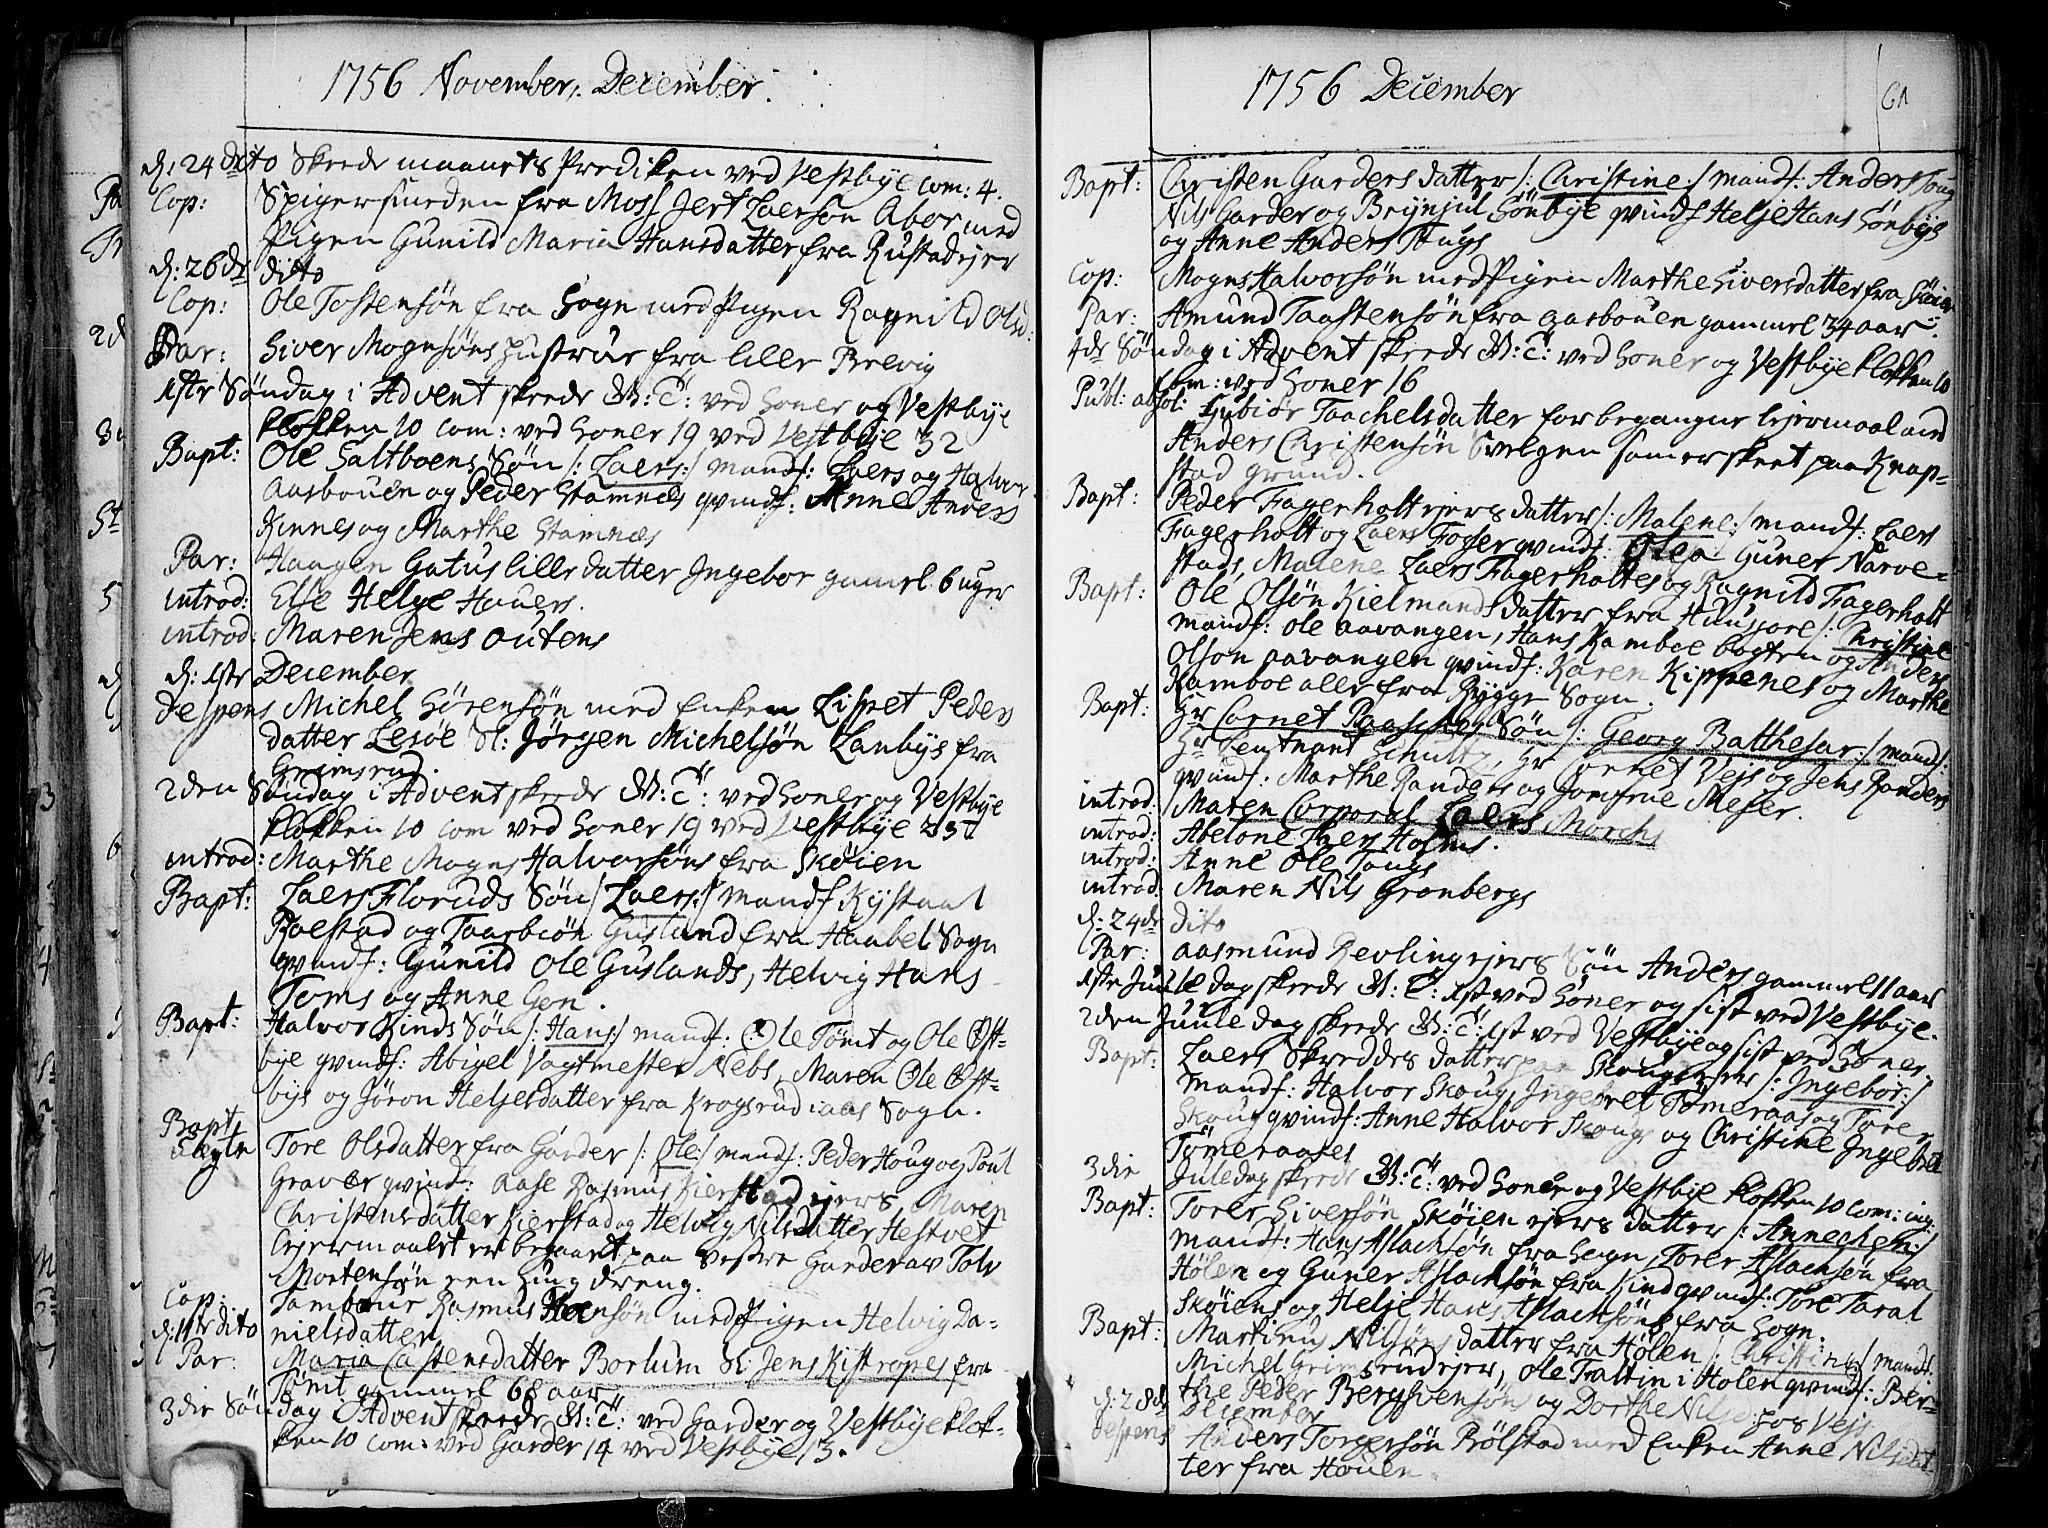 1756 November, December.
d: 24de dito Skrede maanets Prediken ved Vestbye com: 4.
Cop: Spigersmeden fra Moss Jert Laersøn Abor med
Pigen Gunild Maria Hansdatter fra Rustadejer
d: 26de dito
Cop: Ole Tostensøn fra Sogn med Pigen Ragnild Olsd:
Par: Siver Mognsøns Hustrue fra lille Brevig
1ste Søndag i Advent skrede M: T: ved Soner og Vestbye
klokken 10 com: ved Soner 19 ved Vestbye 32
Bapt: Ole Saltboens Søn /: Laers :/ mandf: Laers og Halvor
Aasbouen og Peder Stamnes qvindf: Anne Anders
Kinnes og Marthe Stamnes
Par: Haagen Gatus lille datter Ingebor gamel 6 uger
introd: Else Helge Houers.
introd: Maren Jens Outens
d: 1ste December
despens Michel Sørensøn med Enken Lispet Peders
datter Lesøe Sl: Jørgen Michelsøn Lanbys fra
Grimsrud.
2den Søndag i Advent skrede M: T: ved Soner og Vestbye
klokken 10 com ved Soner 19 ved Vestbye 33
introd: Marthe Mogns Halvorsøns fra Skøien
Bapt: Laers Floruds Søn /: Laers :/ mandf Kystaal
Roestad og Taarbiøn Gusland fra Haabel Sogn
qvindf: Gunild Ole Guslands, Helvig Hans
Toms og Anne Gon.
Bapt: Halvor Kinds Søn /: Hans :/ mandf: Ole Tømt og Ole Øst-
bye qvindf: Abigel Vagtmester Nebs, Maren Ole Øst-
bys og Jøron Heljesdatter fra Krogsrud i aas Sogn.
Bapt
Uegte Tore Olsdatter fra Garder /: Ole :/ mandf: Peder Houg og Poul
Graver qvindf: Aase Rasmus Kierstad ejers Maren
Christensdatter Kierstad og Helvig Nilsdatter Hestvet
Lejermaalet er begaaet paa Vestre Garder av Tolv
Mortensøn een Ung dreng.
Cop: Tambour Rasmus Iversøn med Pigen Helvig Da-
d: 11te dito nielsdatter
Par: Maria Castensdatter Borlum Sl: Jens Kistropes fra
Tømt gammel 68 aar
3die Søndag i Advent skrede M: T: ved Garder og Vestbye klok-
ken 10 com: ved Garder 14 ved Vestbye 13.
1756 December
61
Bapt: Christen Garders datter /: Christine :/ mandf: Anders Toug
Nils Garder og Brynjul Sønbye qvindf Helje Hans Sønbys
og Anne Anders Tougs
Cop: Mogns Halvorsøn med Pigen Marthe Siversdatter fra Skøien
Par: Amund Taastensøn fra aasbouen gammel 34 aar.
4de Søndag i Advent skrede M: T: ved Soner og Vestbye klokken 10
com: ved Soner 16
Publ: absol: Gubiør Taachelsdatter for begangne lejermaal med
Anders Christensøn Svelgen som er skeet paa Knap-
stad grund.
Bapt: Peder Fagerholt ejers datter /: Malene :/ mandf: Laers
Fagerholt og Laers Fosser qvindf: Olea Guner Narve-
stads, Malene Laers Fagerholtes og Ragnild Fagerholt
Bapt: Ole Olsøn Kielmands datter fra Huusjore /: Christine
mandf: Ole aavangen, Hans Kamboe bogten og Anders
Olson aavangen qvindf: Karen Kippenes og Marthe
Kamboe alle fra Rygge Sogn.
Bapt: Hr Cornet Paasches Søn /: Georg Balthesar :/ mandf:
Hr Leutnant Schultz, Hr Cornet Vejs og Jens Randers
qvindf: Marthe Randers og Jomfrue Meser.
introd: Maren Corporal Laers Morchs
introd: Abelone Iver Holms.
introd: Anne Ole Tougs
introd: Maren Nils Gronbergs
d: 24de dito
Par: Aasmund Revling ejers Søn Anders gammel 11 aar
1ste Juule dag skrede M: T: 1st ved Soner og sist ved Vestbye.
2den Juule dag skrede M: T: 1st ved Vestbye og sist ved Soner.
Bapt: Laers Skredders datter paa Skougenser /: Ingebor :/
mandf: Halvor Skoug, Ingebret Tømeraas og Torer
Skoug qvindf: Anne Halvor Skougs og Christine Ingebret
Tømeraases
3die Juledag skrede M: T: ved Soner og Vestbye klokken 10 com: ing:
Bapt: Torer Siversøn Skøien ejers datter /: Annechen :/
mandf: Hans Aslachsøn fra Sogn, Torer Aslachsøn fra
Hølen og Guner Aslachsøn fra Kind qvindf: Tore Taral
Skøiens og Helje Hans Aslachsøns fra Sogn.
Bapt: Martinus Nilsøns datter fra Hølen /: Christine :/ mandf:
Michel Grimsrud ejer, Ole Trattin i Hølen qvindf: Ber-
the Peder Bergsvensøns og Dorthe Nilsd: hos Vejs
d: 28de December
despens Anders Torgersøn Rølstad med Enken Anne Nilsdat
ter fra Houen.